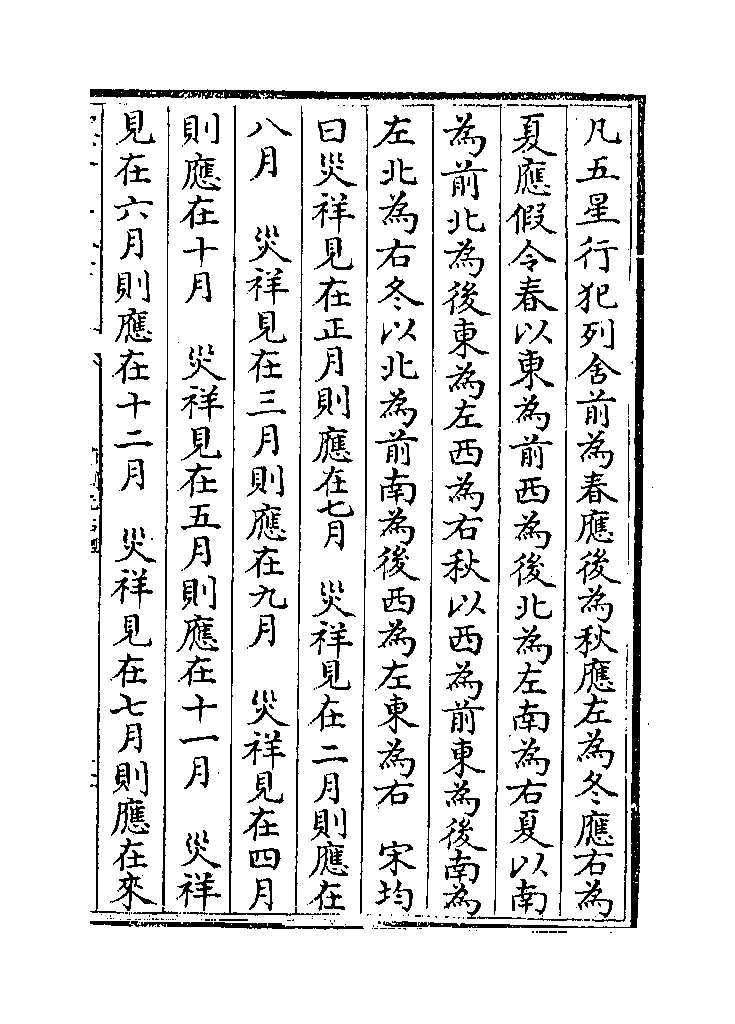 凡五星行犯列舍前為春應後為秋應左為冬應右為
夏應假令春以東為前西為後北為左南為右夏以南
為前北為後東為左西為右秋以西為前東為後南為
左北為右冬以北為前南為後西為左東為右　宋均
曰災祥見在正月則應在七月　災祥見在二月則應在
八月　災祥見在三月則應在九月　災祥見在四月
則應在十月　災祥見在五月則應在十一月　災祥
見在六月則應在十二月　災祥見在七月則應在來